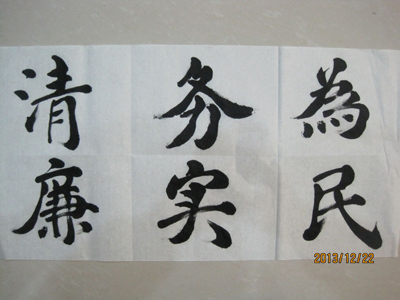 為民
务实
清廉
2013/12/22